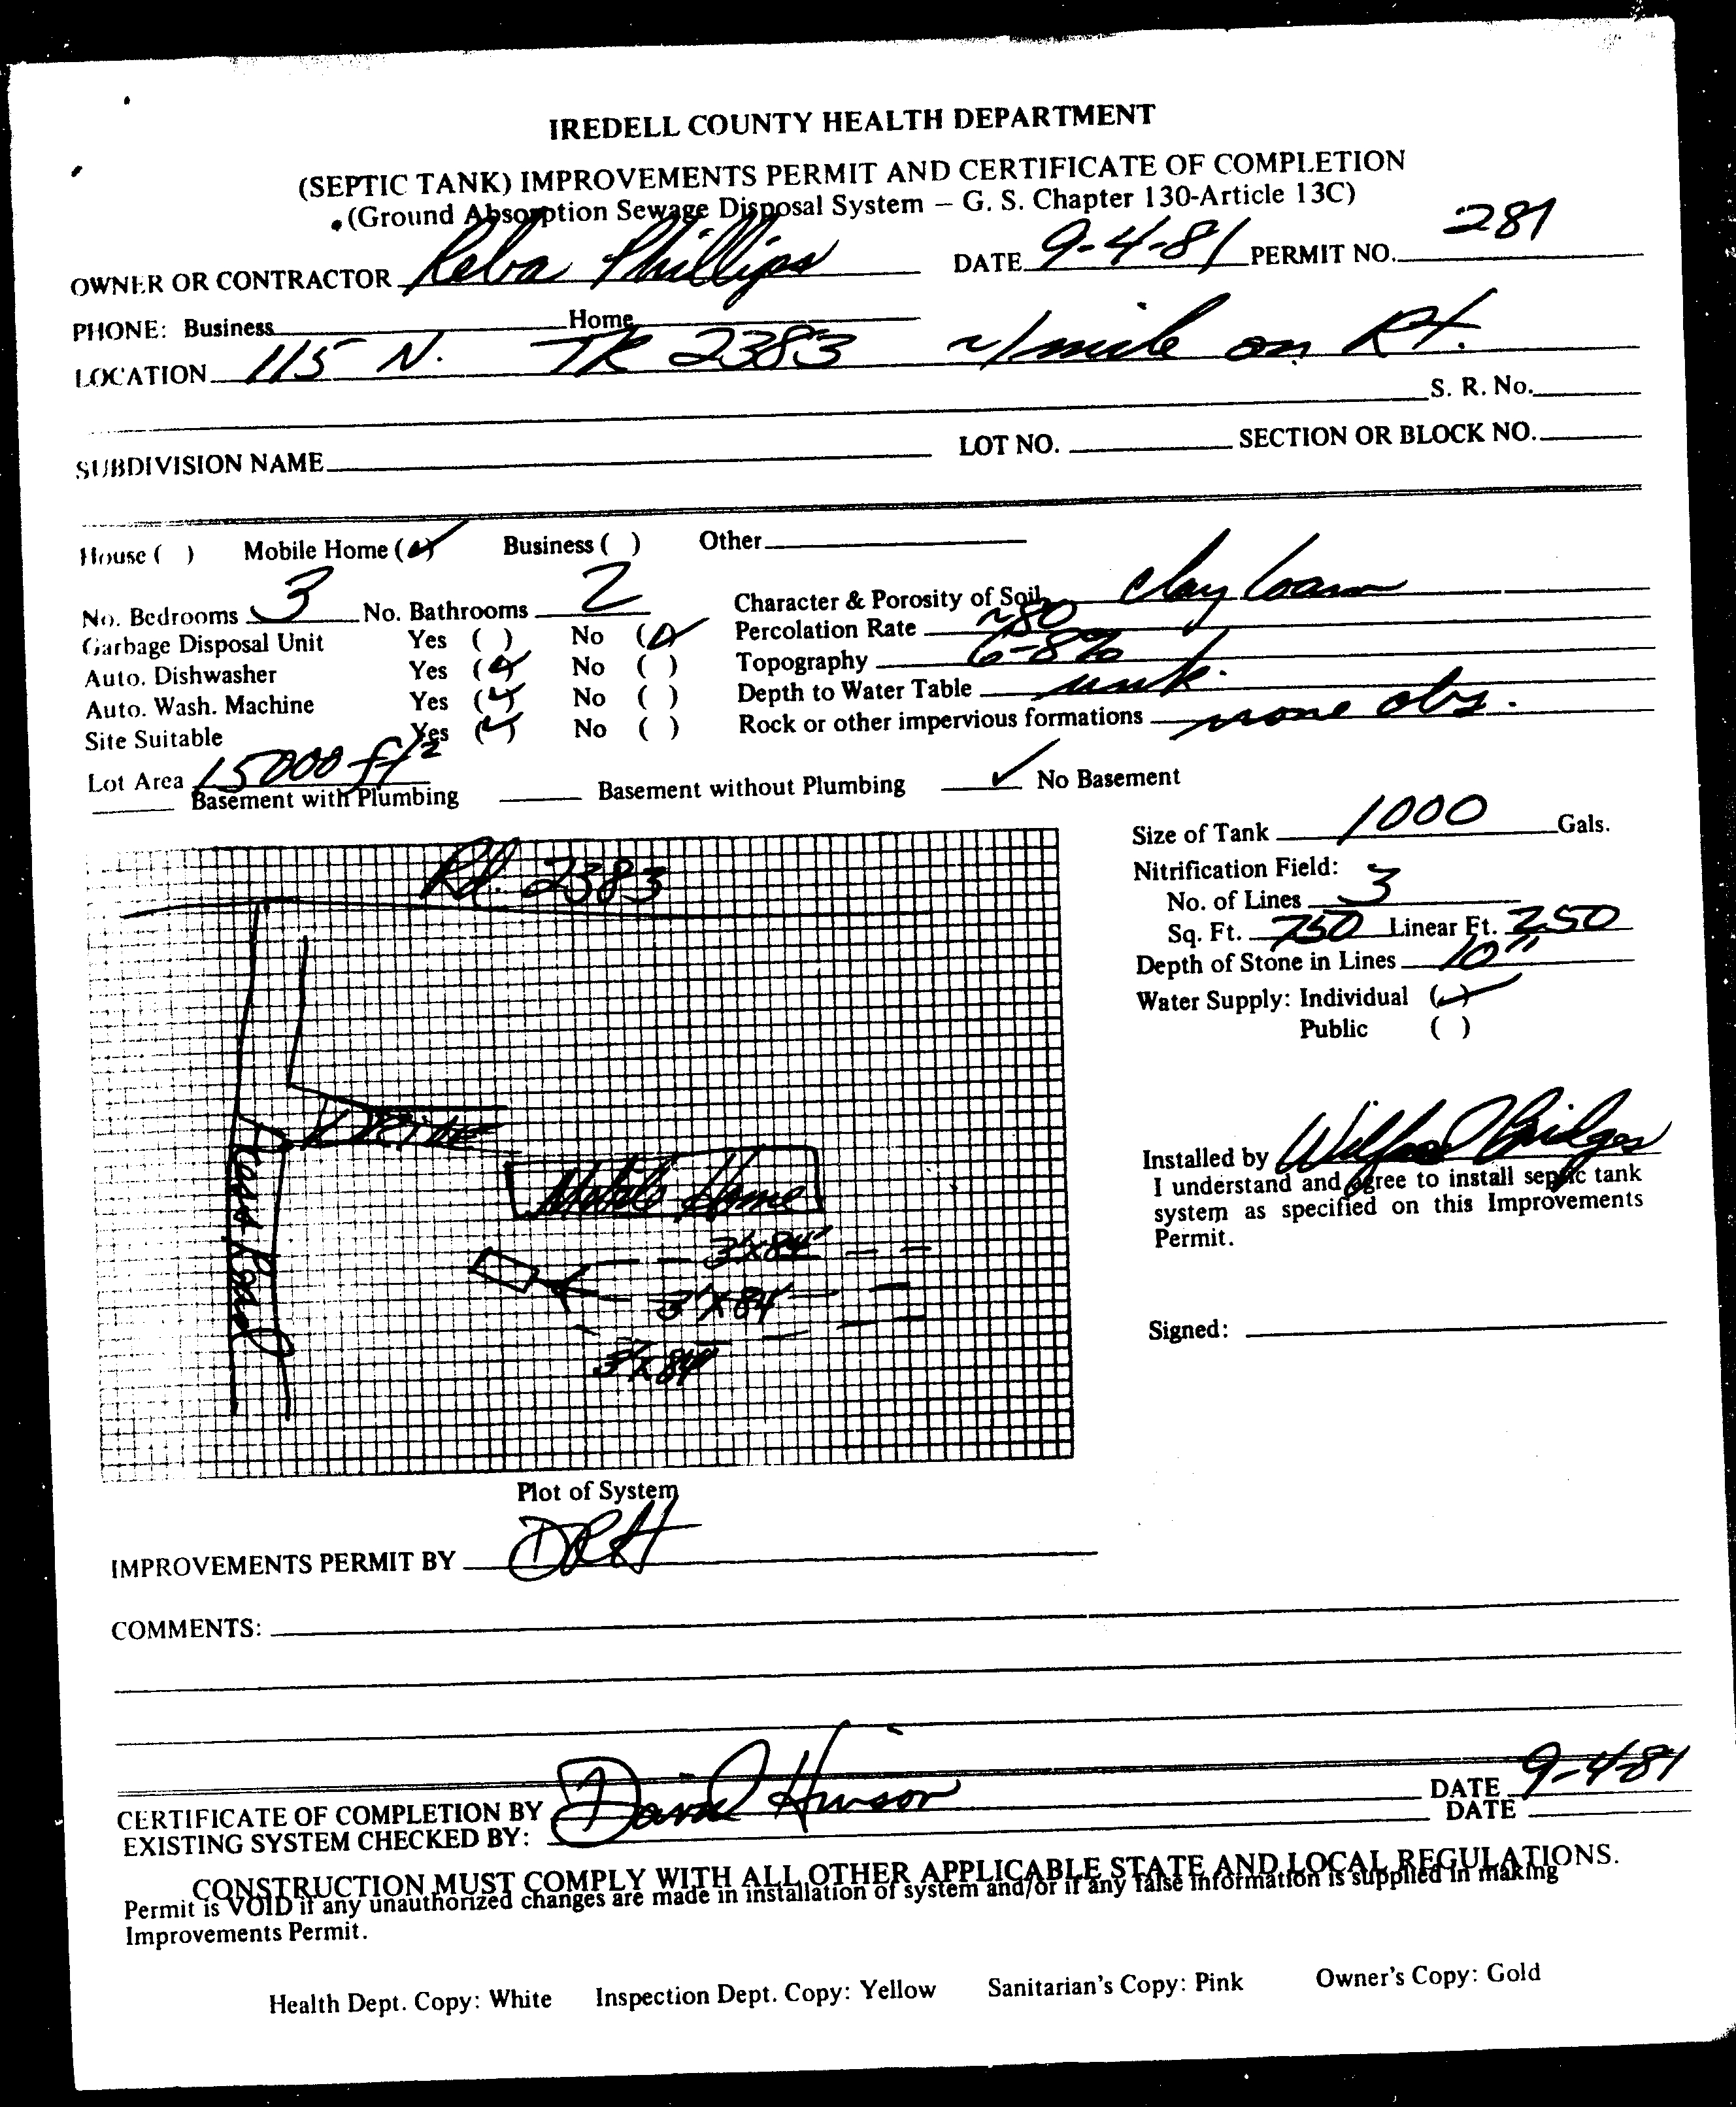 IREDELL COUNTY HEALTH DEPARTMENT
(SEPTIC TANK) IMPROVEMENTS PERMIT AND CERTIFICATE OF COMPLETION
(Ground Absorption Sewage Disposal System – G. S. Chapter 130-Article 13C)
OWNER OR CONTRACTOR Reba Phillips DATE 9-4-81 PERMIT NO. 281
PHONE: Business Home
LOCATION 115 N. TR 2383 ~1 mile on Rt.
S. R. No.
SUBDIVISION NAME LOT NO. SECTION OR BLOCK NO.
House ( ) Mobile Home (✓) Business ( ) Other
No. Bedrooms 3 No. Bathrooms 2 Character & Porosity of Soil clay loam
Garbage Disposal Unit Yes ( ) No (✓) Percolation Rate ~80
Auto. Dishwasher Yes (✓) No ( ) Topography 6-8%
Auto. Wash. Machine Yes (✓) No ( ) Depth to Water Table unk.
Site Suitable Yes (✓) No ( ) Rock or other impervious formations none obs.
Lot Area 15000 ft²
Basement with Plumbing Basement without Plumbing ✓ No Basement
Rd. 2383
Drive
Road
Mobile Home
3'x84'
3'x84'
3'x84'
Size of Tank 1000 Gals.
Nitrification Field:
No. of Lines 3
Sq. Ft. 750 Linear Ft. 250
Depth of Stone in Lines 10"
Water Supply: Individual (✓)
Public ( )
Installed by Bridges
I understand and agree to install septic tank
system as specified on this Improvements
Permit.
Signed:
Plot of System
IMPROVEMENTS PERMIT BY DRH
COMMENTS:
CERTIFICATE OF COMPLETION BY David Hinson DATE 9-4-81
EXISTING SYSTEM CHECKED BY: DATE
CONSTRUCTION MUST COMPLY WITH ALL OTHER APPLICABLE STATE AND LOCAL REGULATIONS.
Permit is VOID if any unauthorized changes are made in installation of system and/or if any false information is supplied in making
Improvements Permit.
Health Dept. Copy: White Inspection Dept. Copy: Yellow Sanitarian's Copy: Pink Owner's Copy: Gold